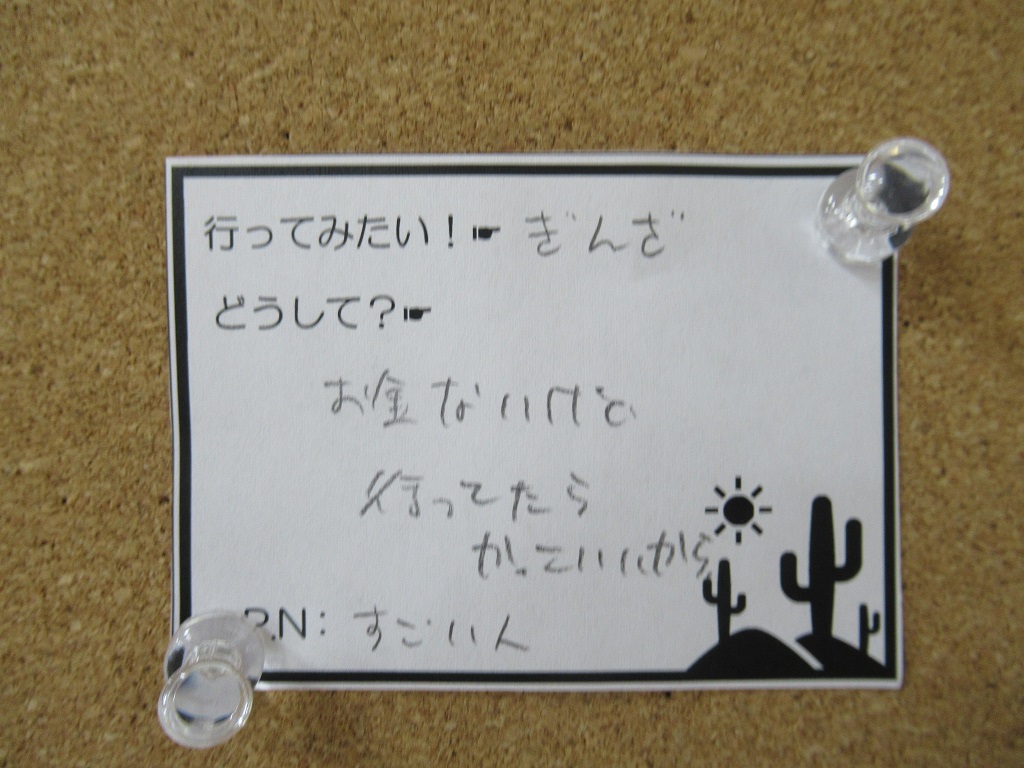 行ってみたい!☛ ぎんざ
どうして?☛
お金ないけど
行ってたら
かっこいいから
P.N: すごい人